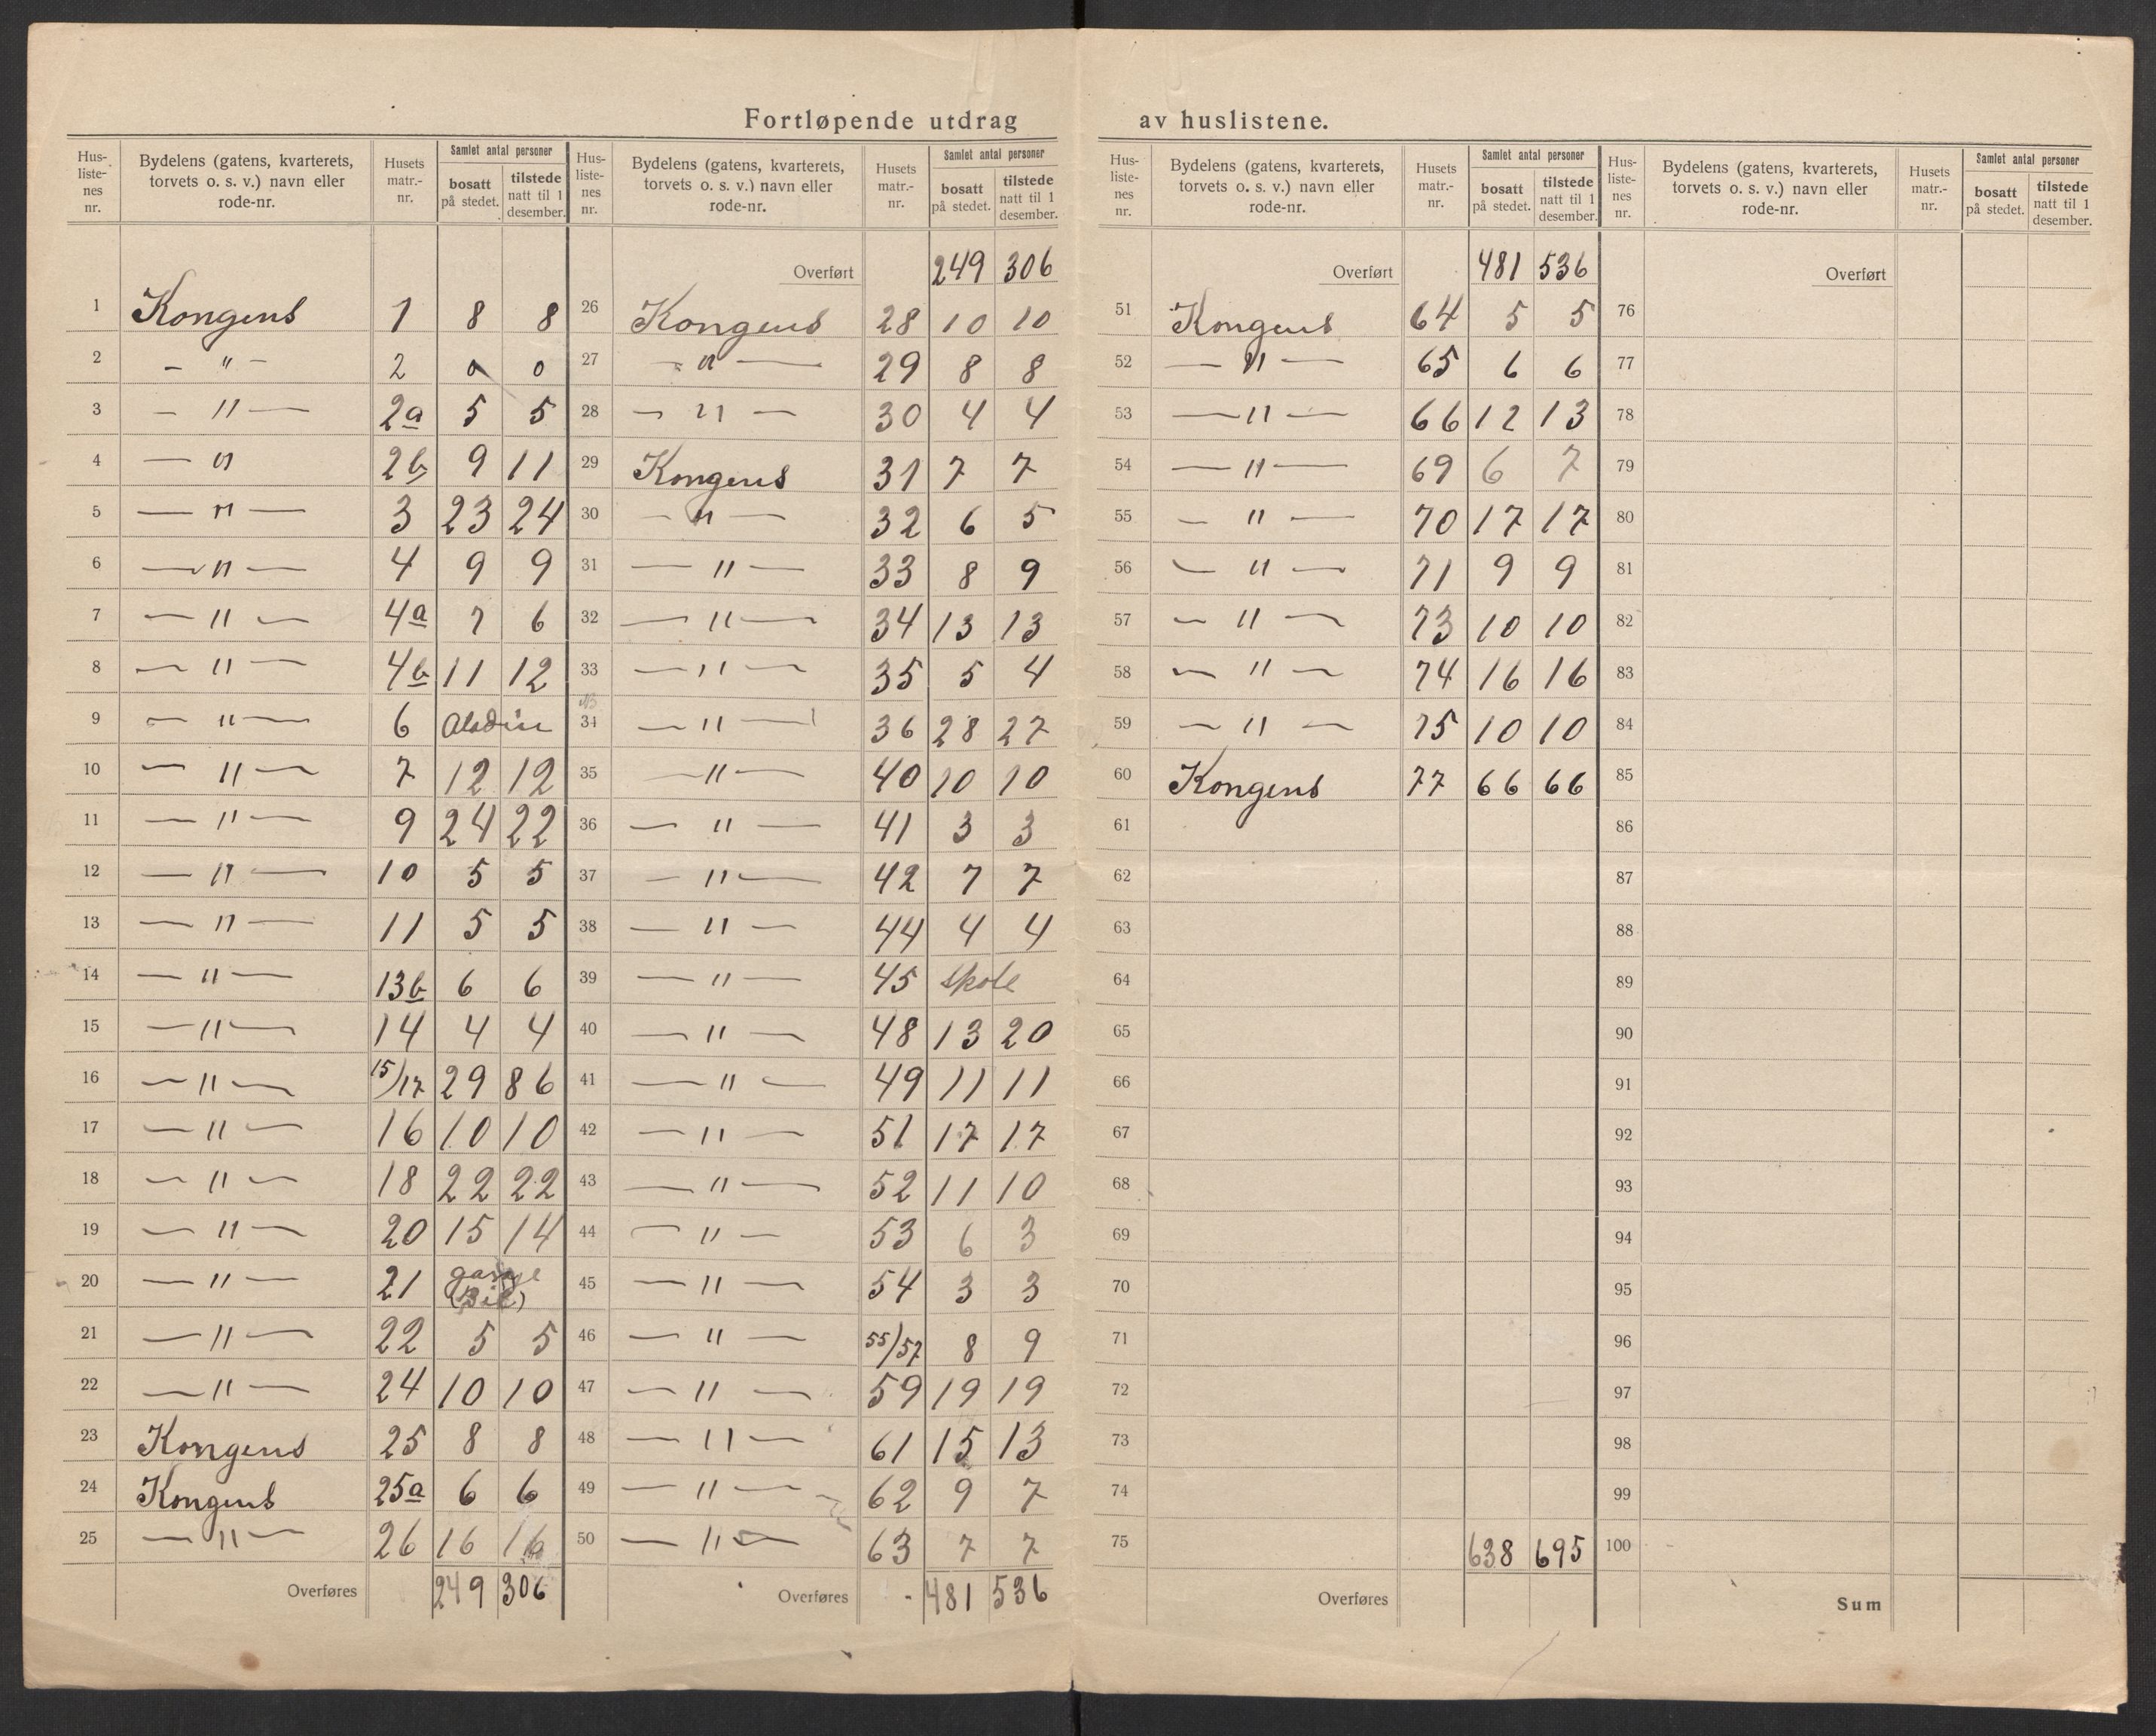 Fortløpende utdrag av huslistene.
Hus-listenes nr. | Bydelens (gatens, kvarterets, torvets o. s. v.) navn eller rode-nr. | Husets matr.-nr. | Samlet antal personer | bosatt på stedet. | tilstede natt til 1 desember.
1 Kongens 1 8 8
2 – " – 2 0 0
3 – " – 2a 5 5
4 – " 2b 9 11
5 – " – 3 23 24
6 – " – 4 9 9
7 – " – 4a 7 6
8 – " – 4b 11 12
9 – " – 6 Aladin
10 – " – 7 12 12
11 – " – 9 24 22
12 – " – 10 5 5
13 – " – 11 5 5
14 – " – 13b 6 6
15 – " – 14 4 4
16 – " – 15/17 29 86
17 – " – 16 10 10
18 – " – 18 22 22
19 – " – 20 15 14
20 – " – 21 garage (Bil)
21 – " – 22 5 5
22 – " – 24 10 10
23 Kongens 25 8 8
24 Kongens 25a 6 6
25 – " – 26 16 16
Overføres 249 306
Hus-listenes nr. | Bydelens (gatens, kvarterets, torvets o. s. v.) navn eller rode-nr. | Husets matr.-nr. | Samlet antal personer | bosatt på stedet. | tilstede natt til 1 desember.
Overført 249 306
26 Kongens 28 10 10
27 – " – 29 8 8
28 – " – 30 4 4
29 Kongens 31 7 7
30 – " – 32 6 5
31 – " – 33 8 9
32 – " – 34 13 13
33 – " – 35 5 4
34 – " – 36 28 27
35 – " – 40 10 10
36 – " – 41 3 3
37 – " – 42 7 7
38 – " – 44 4 4
39 – " – 45 Skole
40 – " – 48 13 20
41 – " – 49 11 11
42 – " – 51 17 17
43 – " – 52 11 10
44 – " – 53 6 3
45 – " – 54 3 3
46 – " – 55/57 8 9
47 – " – 59 19 19
48 – " – 61 15 13
49 – " – 62 9 7
50 – " – 63 7 7
Overføres 481 536
Hus-listenes nr. | Bydelens (gatens, kvarterets, torvets o. s. v.) navn eller rode-nr. | Husets matr.-nr. | Samlet antal personer | bosatt på stedet. | tilstede natt til 1 desember.
Overført 481 536
51 Kongens 64 5 5
52 – " – 65 6 6
53 – " – 66 12 13
54 – " – 69 6 7
55 – " – 70 17 17
56 – " – 71 9 9
57 – " – 73 10 10
58 – " – 74 16 16
59 – " – 75 10 10
60 Kongens 77 66 66
61
62
63
64
65
66
67
68
69
70
71
72
73
74
75 638 695
Overføres
Hus-listenes nr. | Bydelens (gatens, kvarterets, torvets o. s. v.) navn eller rode-nr. | Husets matr.-nr. | Samlet antal personer | bosatt på stedet. | tilstede natt til 1 desember.
Overført
76
77
78
79
80
81
82
83
84
85
86
87
88
89
90
91
92
93
94
95
96
97
98
99
100
Sum